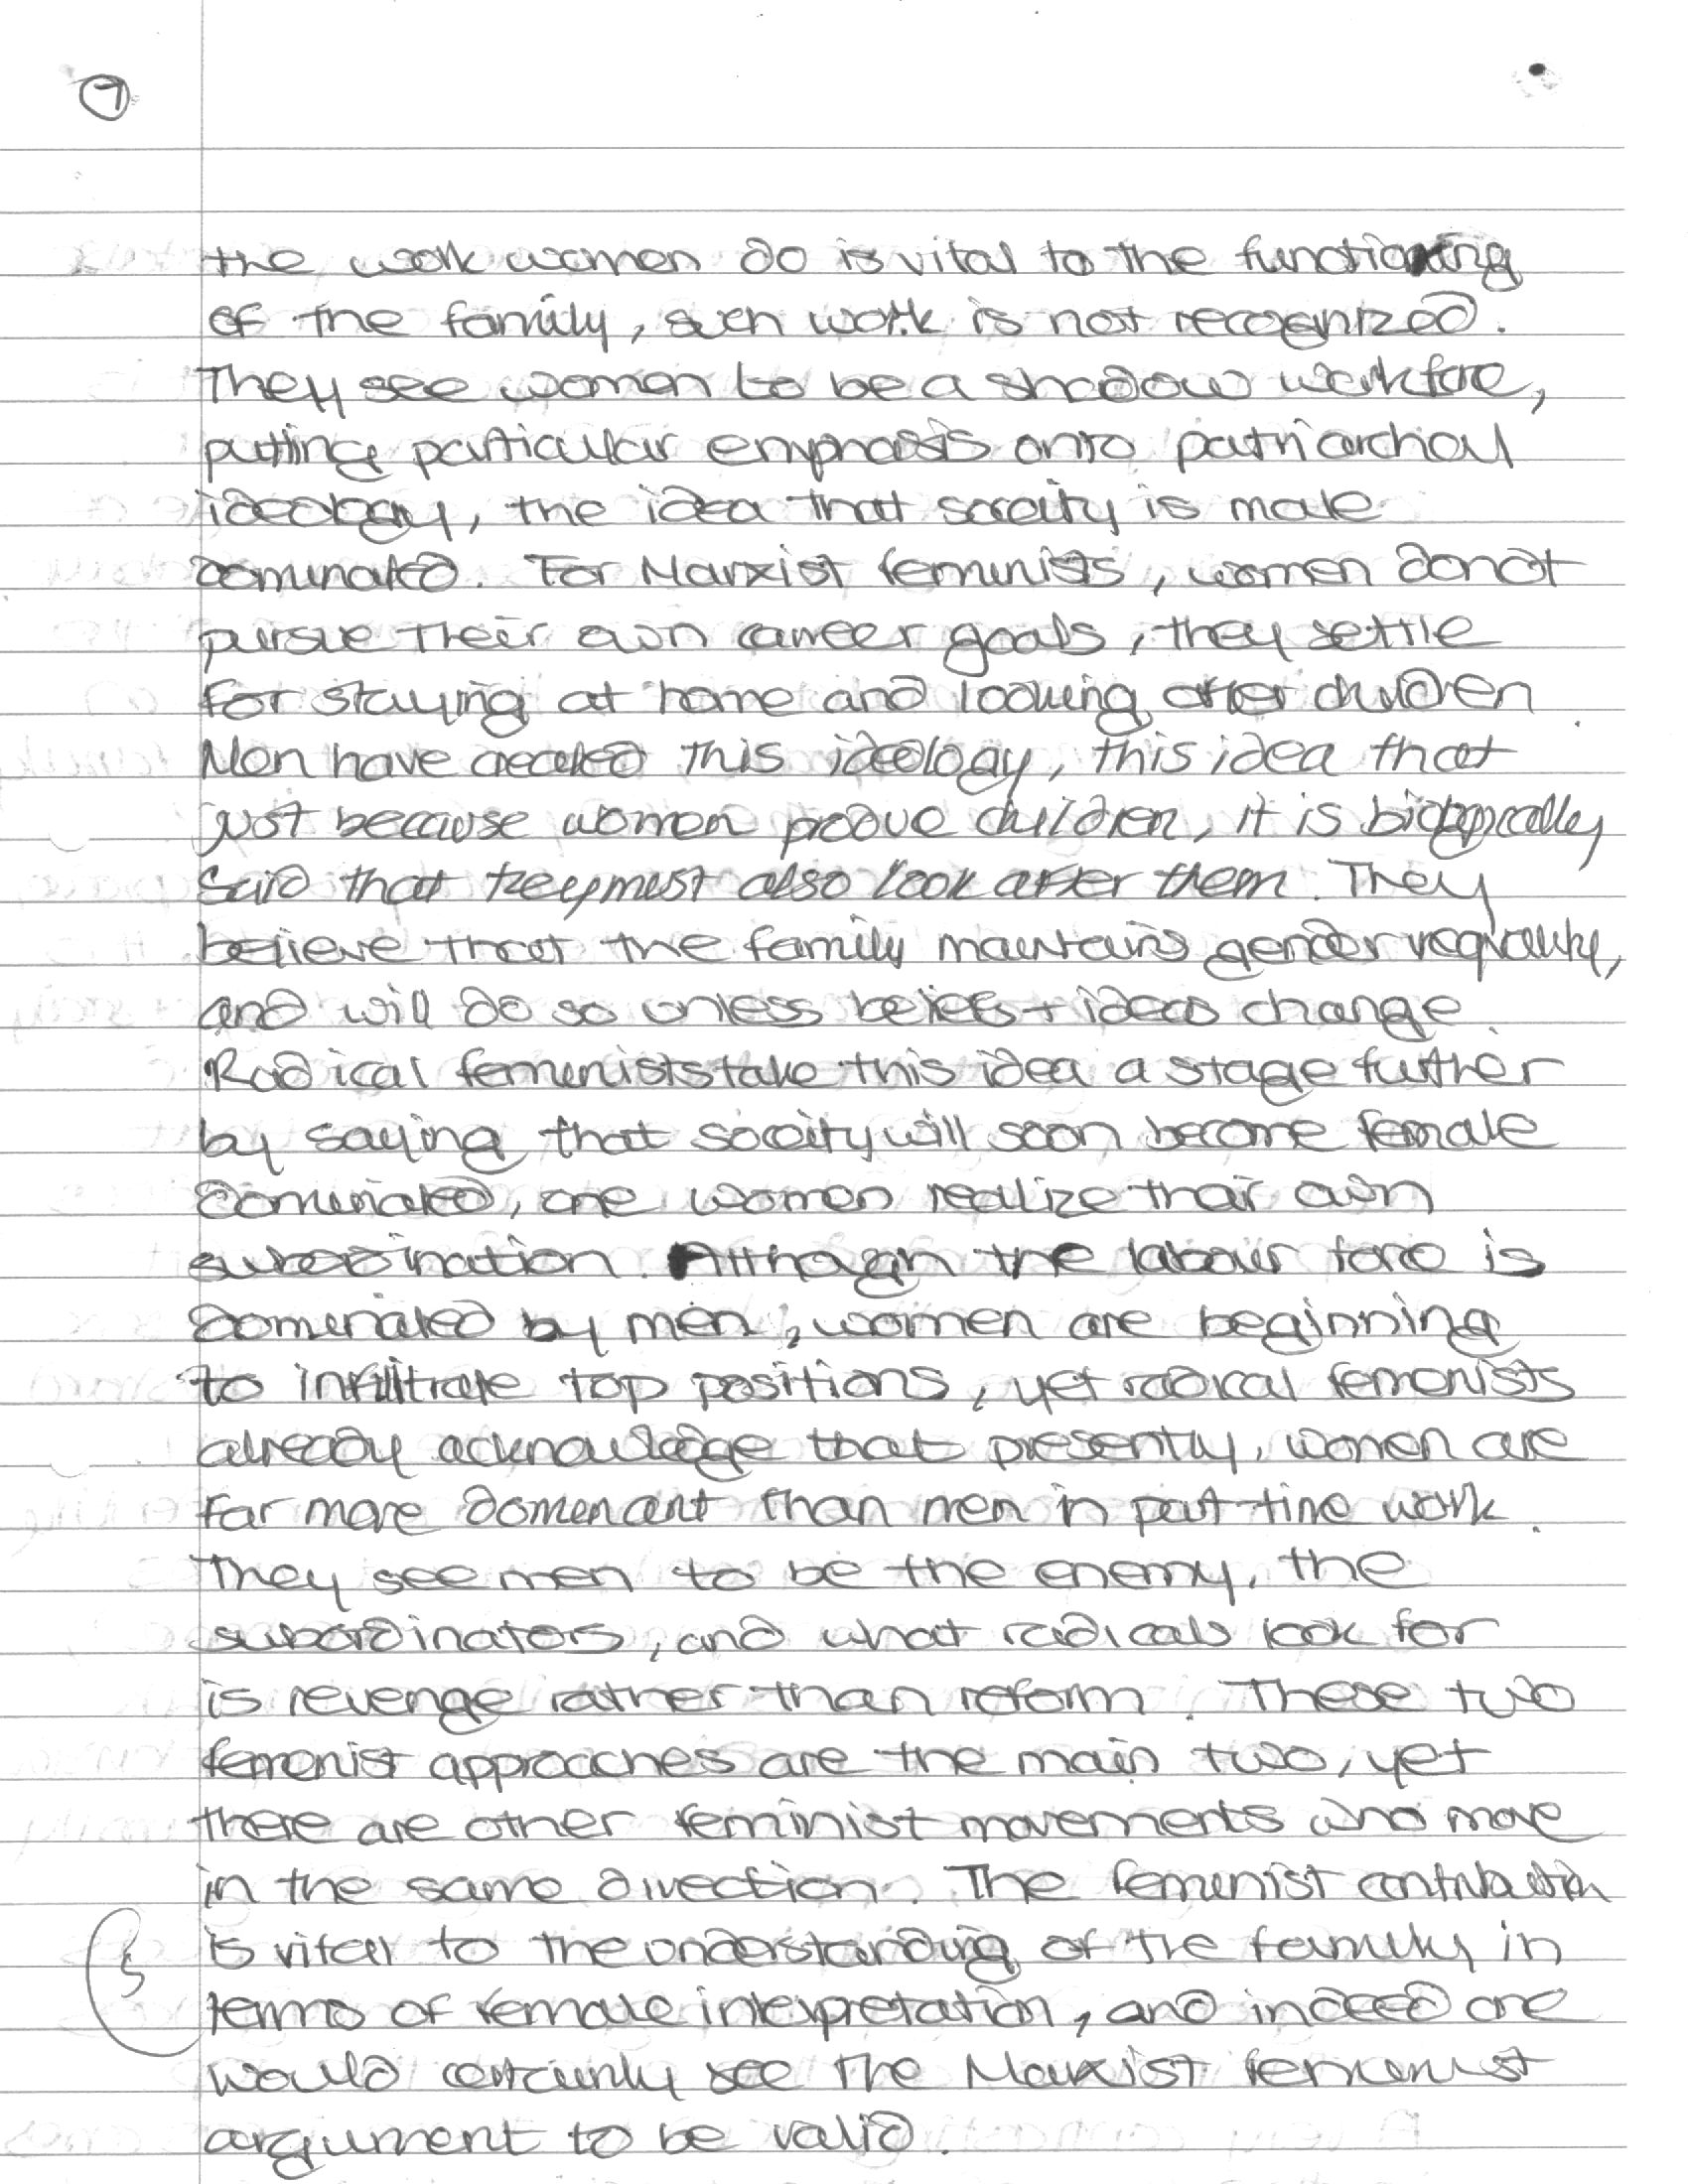 7
the work women do is vital to the functioning
of the family, such work is not recognized.
They see women to be a shadow workforce,
putting particular emphasis onto patriarchal
ideology, the idea that socoity is male
dominated. For Marxist feminists, women donot
pursue their own career goals, they settle
for staying at home and looking after children
Men have created this ideology, this idea that
just because women produce children, it is biologically
said that they must also look after them. They
believe that the family maintains gender inequality,
and will do so unless beliefs + ideas change.
Radical feminists take this idea a stage further
by saying that socoity will soon become female
dominated, once women realize their own
subordination. Although the labour force is
dominated by men, women are beginning
to infilitrate top positions, yet radical femenists
already acknowledge that presently, women are
far more domenant than men in part-time work.
They see men to be the enemy, the
subordinators, and what radicals look for
is revenge rather than reform. These two
femenist approaches are the main two, yet
there are other feminist movements who move
in the same direction. The femenist contribution
is vital to the understanding of the family in
terms of female interpretation, and indeed one
would certainly see the Marxist femenist
argument to be valid.